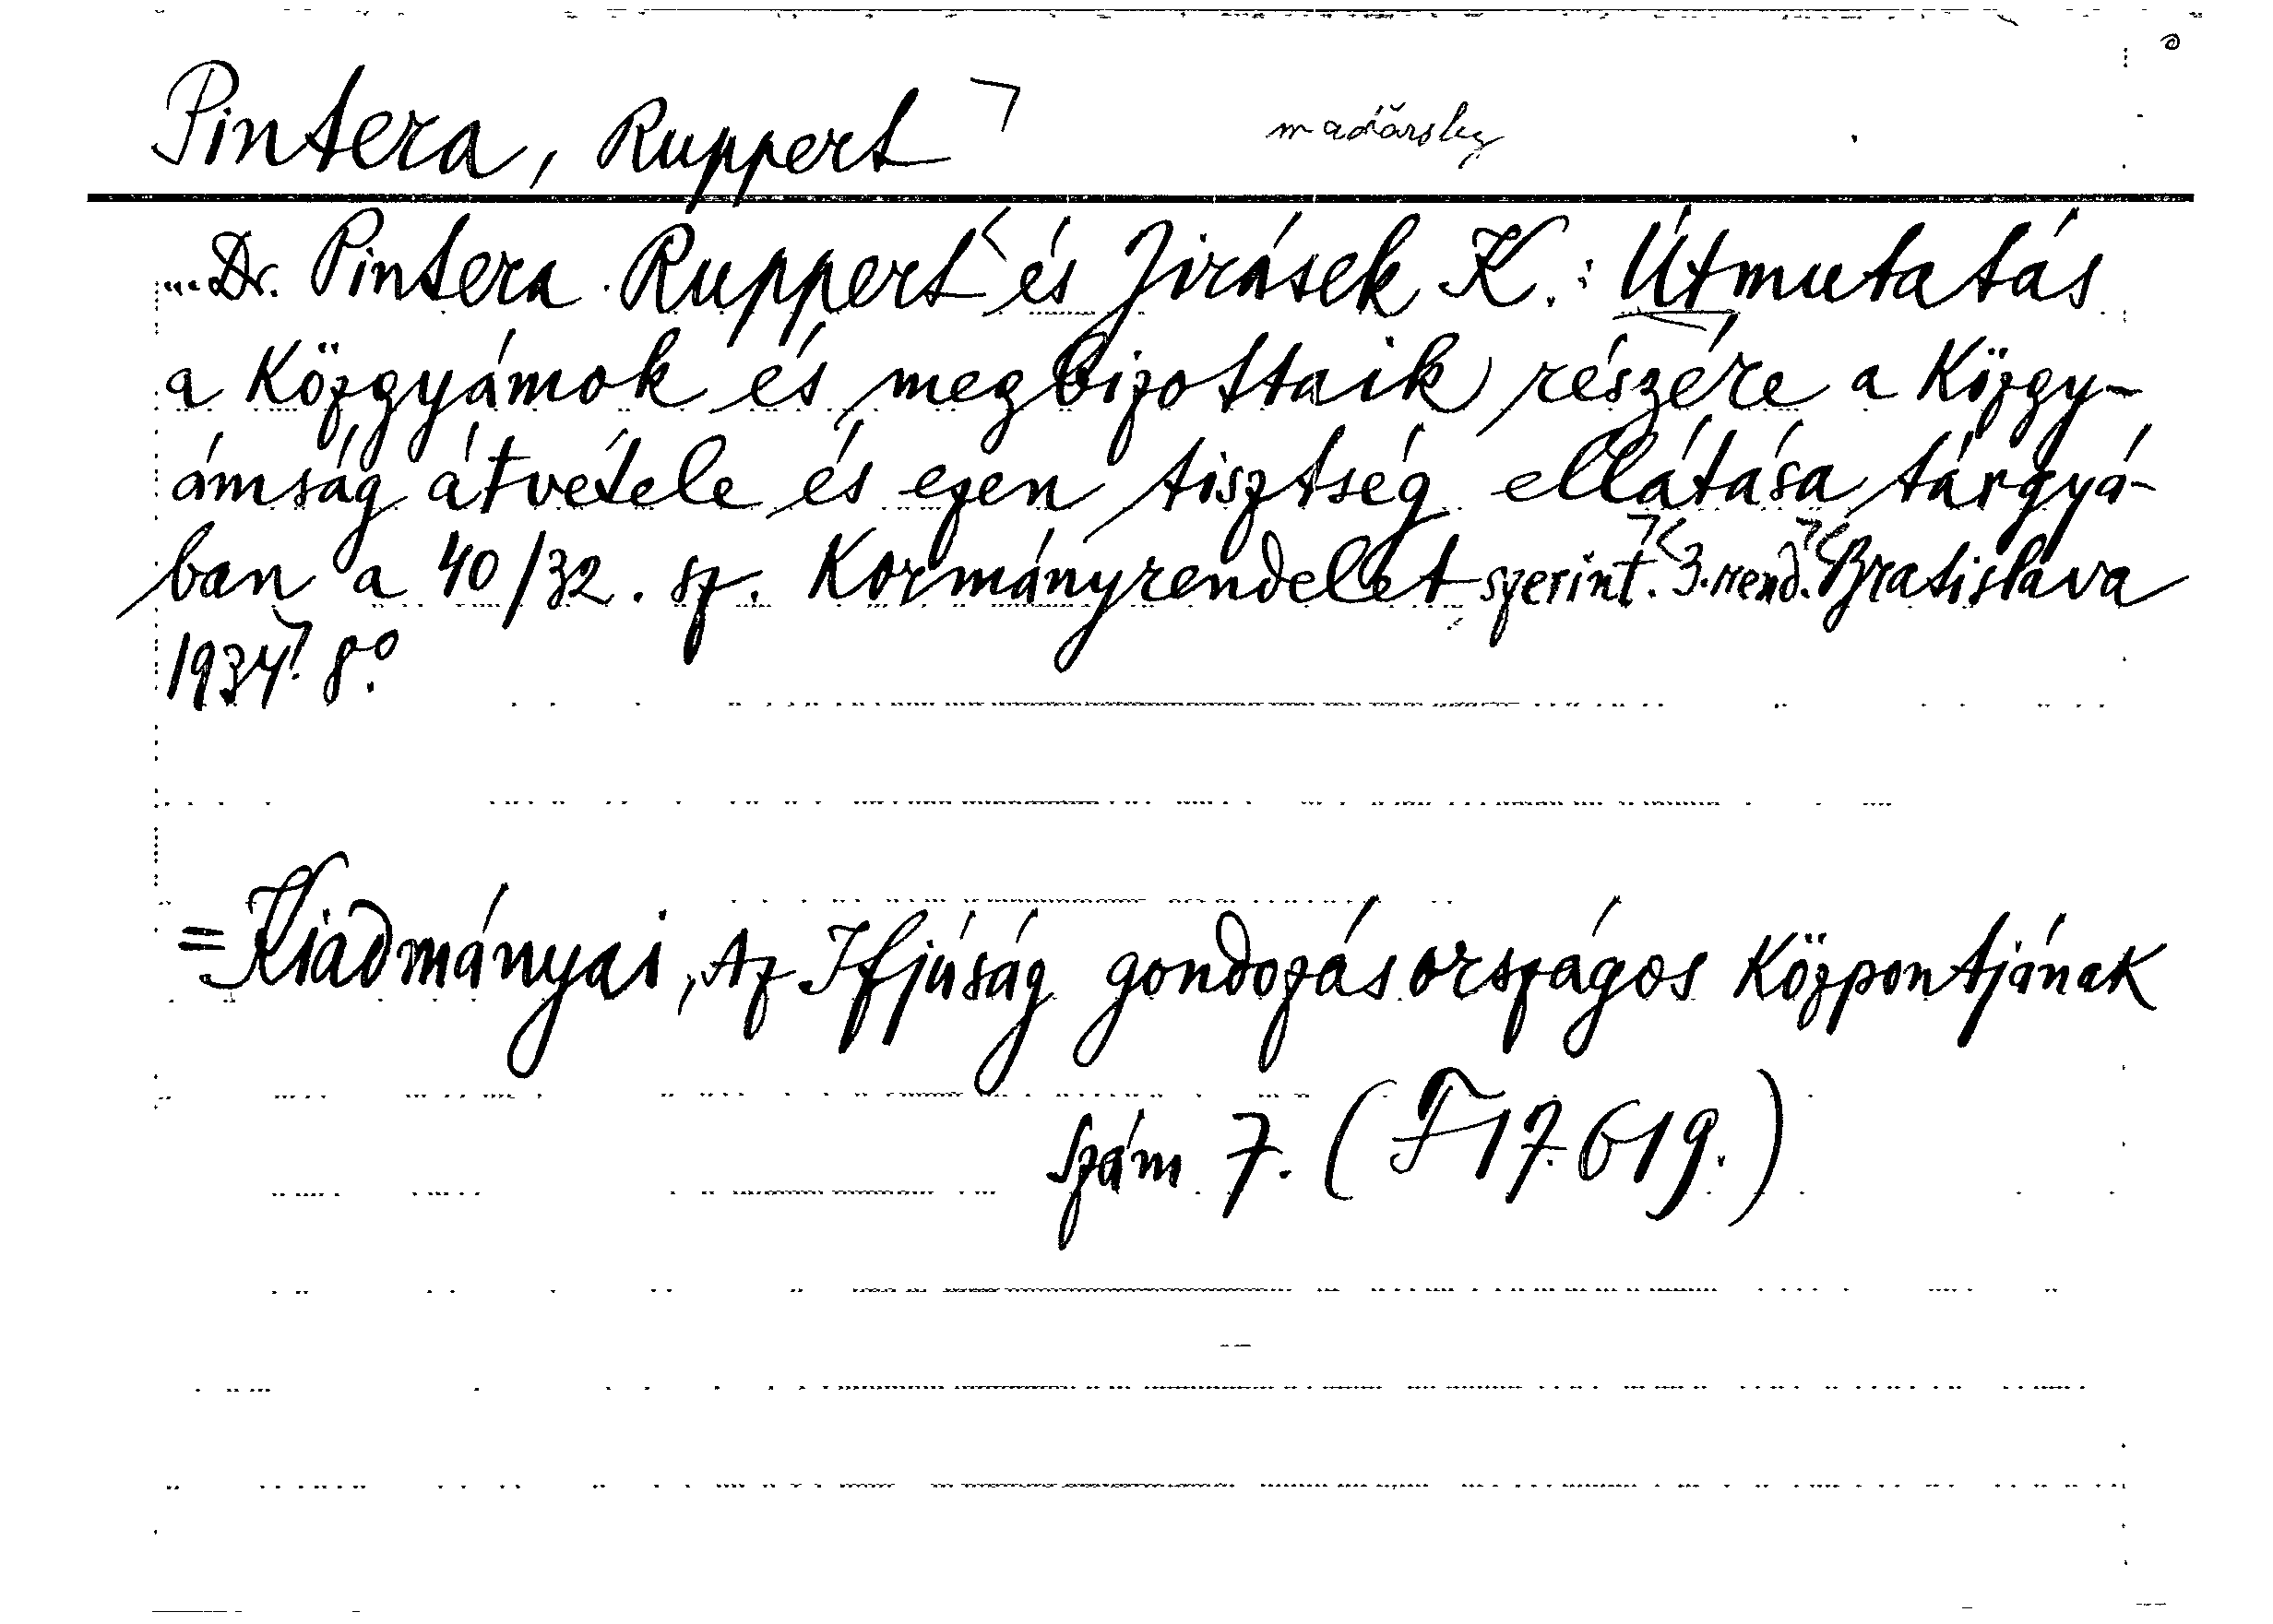 Pintera, Ruppert maďarsky
... Dr. Pintera Ruppert és Jirásek K.: Útmutatás
a Közgyámok és megbizottaik részére a Közgy-
ámság átvétele és ezen tisztség ellátása tárgyá-
ban a 40/32. sz. Kormányrendelet szerint. 3. rend. Bratislava
1934. 8º.
=Kiadmányai, Az Ifjúság gondozás országos Központjának
szám 7. (F 17.619.)